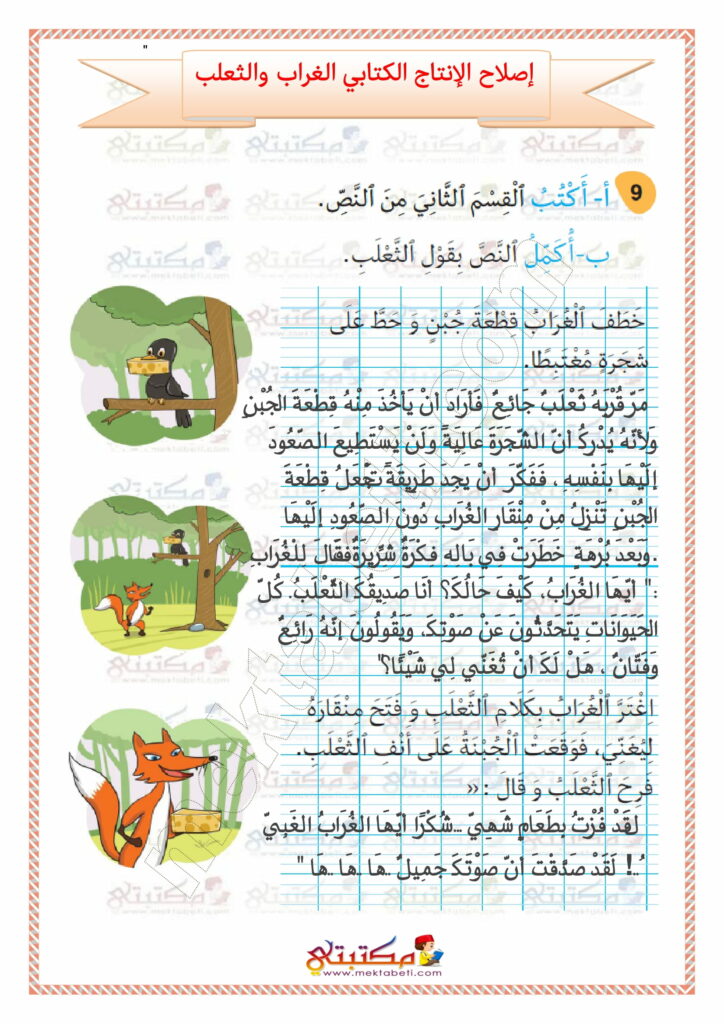 "
إصلاح الإنتاج الكتابي الغراب والثعلب
9 أ- أَكْتُبُ ٱلْقِسْمَ ٱلثَّانِيَ مِنَ ٱلنَّصِّ.
ب-أُكَمِّلُ ٱلنَّصَّ بِقَوْلِ ٱلثَّعْلَبِ.
خَطَفَ ٱلْغُرَابُ قِطْعَةَ جُبْنٍ وَ حَطَّ عَلَى
شَجَرَةٍ مُغْتَبِطًا.
مَرّ قُرْبَهُ ثَعْلَبٌ جَائِعٌ فَأَرَادَ أَنْ يَأْخُذَ مِنْهُ قِطْعَةَ الجُبْنِ
وَلِأَنَّهُ يُدْرِكُ أَنّ الشّجَرَةَ عَالِيةً وَلَنْ يَسْتَطِيع الصّعُودَ
إِلَيْهَا بِنَفْسِهِ ، فَفَكّرَ أَنْ يَجِدَ طَرِيقَةً تَجْعَلُ قِطْعَةَ
الجُبْنِ تَنْزِلُ مِنْ مِنْقَارِ الغُرَابِ دُونَ الصّعُودِ إِلَيْهَا
.وَبَعْدَ بُرْهَةٍ خَطَرَتْ فِي بَالِهِ فِكْرَةٌ شرّيرةٌ فقَالَ لِلْغُرَابِ
:" أَيّهَا الغُرَابُ، كَيْفَ حَالُكَ؟ أَنَا صَدِيقُكَ الثّعْلَبُ. كُلّ
الحَيَوانَاتِ يَتَحَدّثُونَ عَنْ صَوْتِكَ، وَيَقُولُونَ إِنّهُ رَائِعٌ
وَفَتّانٌ ، هَلْ لَكَ أَنْ تُغَنّي لِي شَيْئًا؟"
اِغْتَرَّ ٱلْغُرَابُ بِكَلَامِ ٱلثَّعْلَبِ وَ فَتَحَ مِنْقَارَهُ
لِيُغَنِّيَ، فَوَقَعَتْ ٱلْجُبْنَةُ عَلَى أَنْفِ ٱلثَّعْلَبِ.
فَرِحَ ٱلثَّعْلَبُ وَ قَالَ : «
لَقَدْ فُزْتُ بِطَعَامٍ شَهِيّ ...شُكْرًا أَيّهَا الغُرَابُ الغَبِيّ
ُ..! لَقَدْ صَدّقْتَ أَنّ صَوْتَكَ جَمِيلٌ ..هَا ..هَا ..هَا "
مكتبتي
www.mektabeti.com